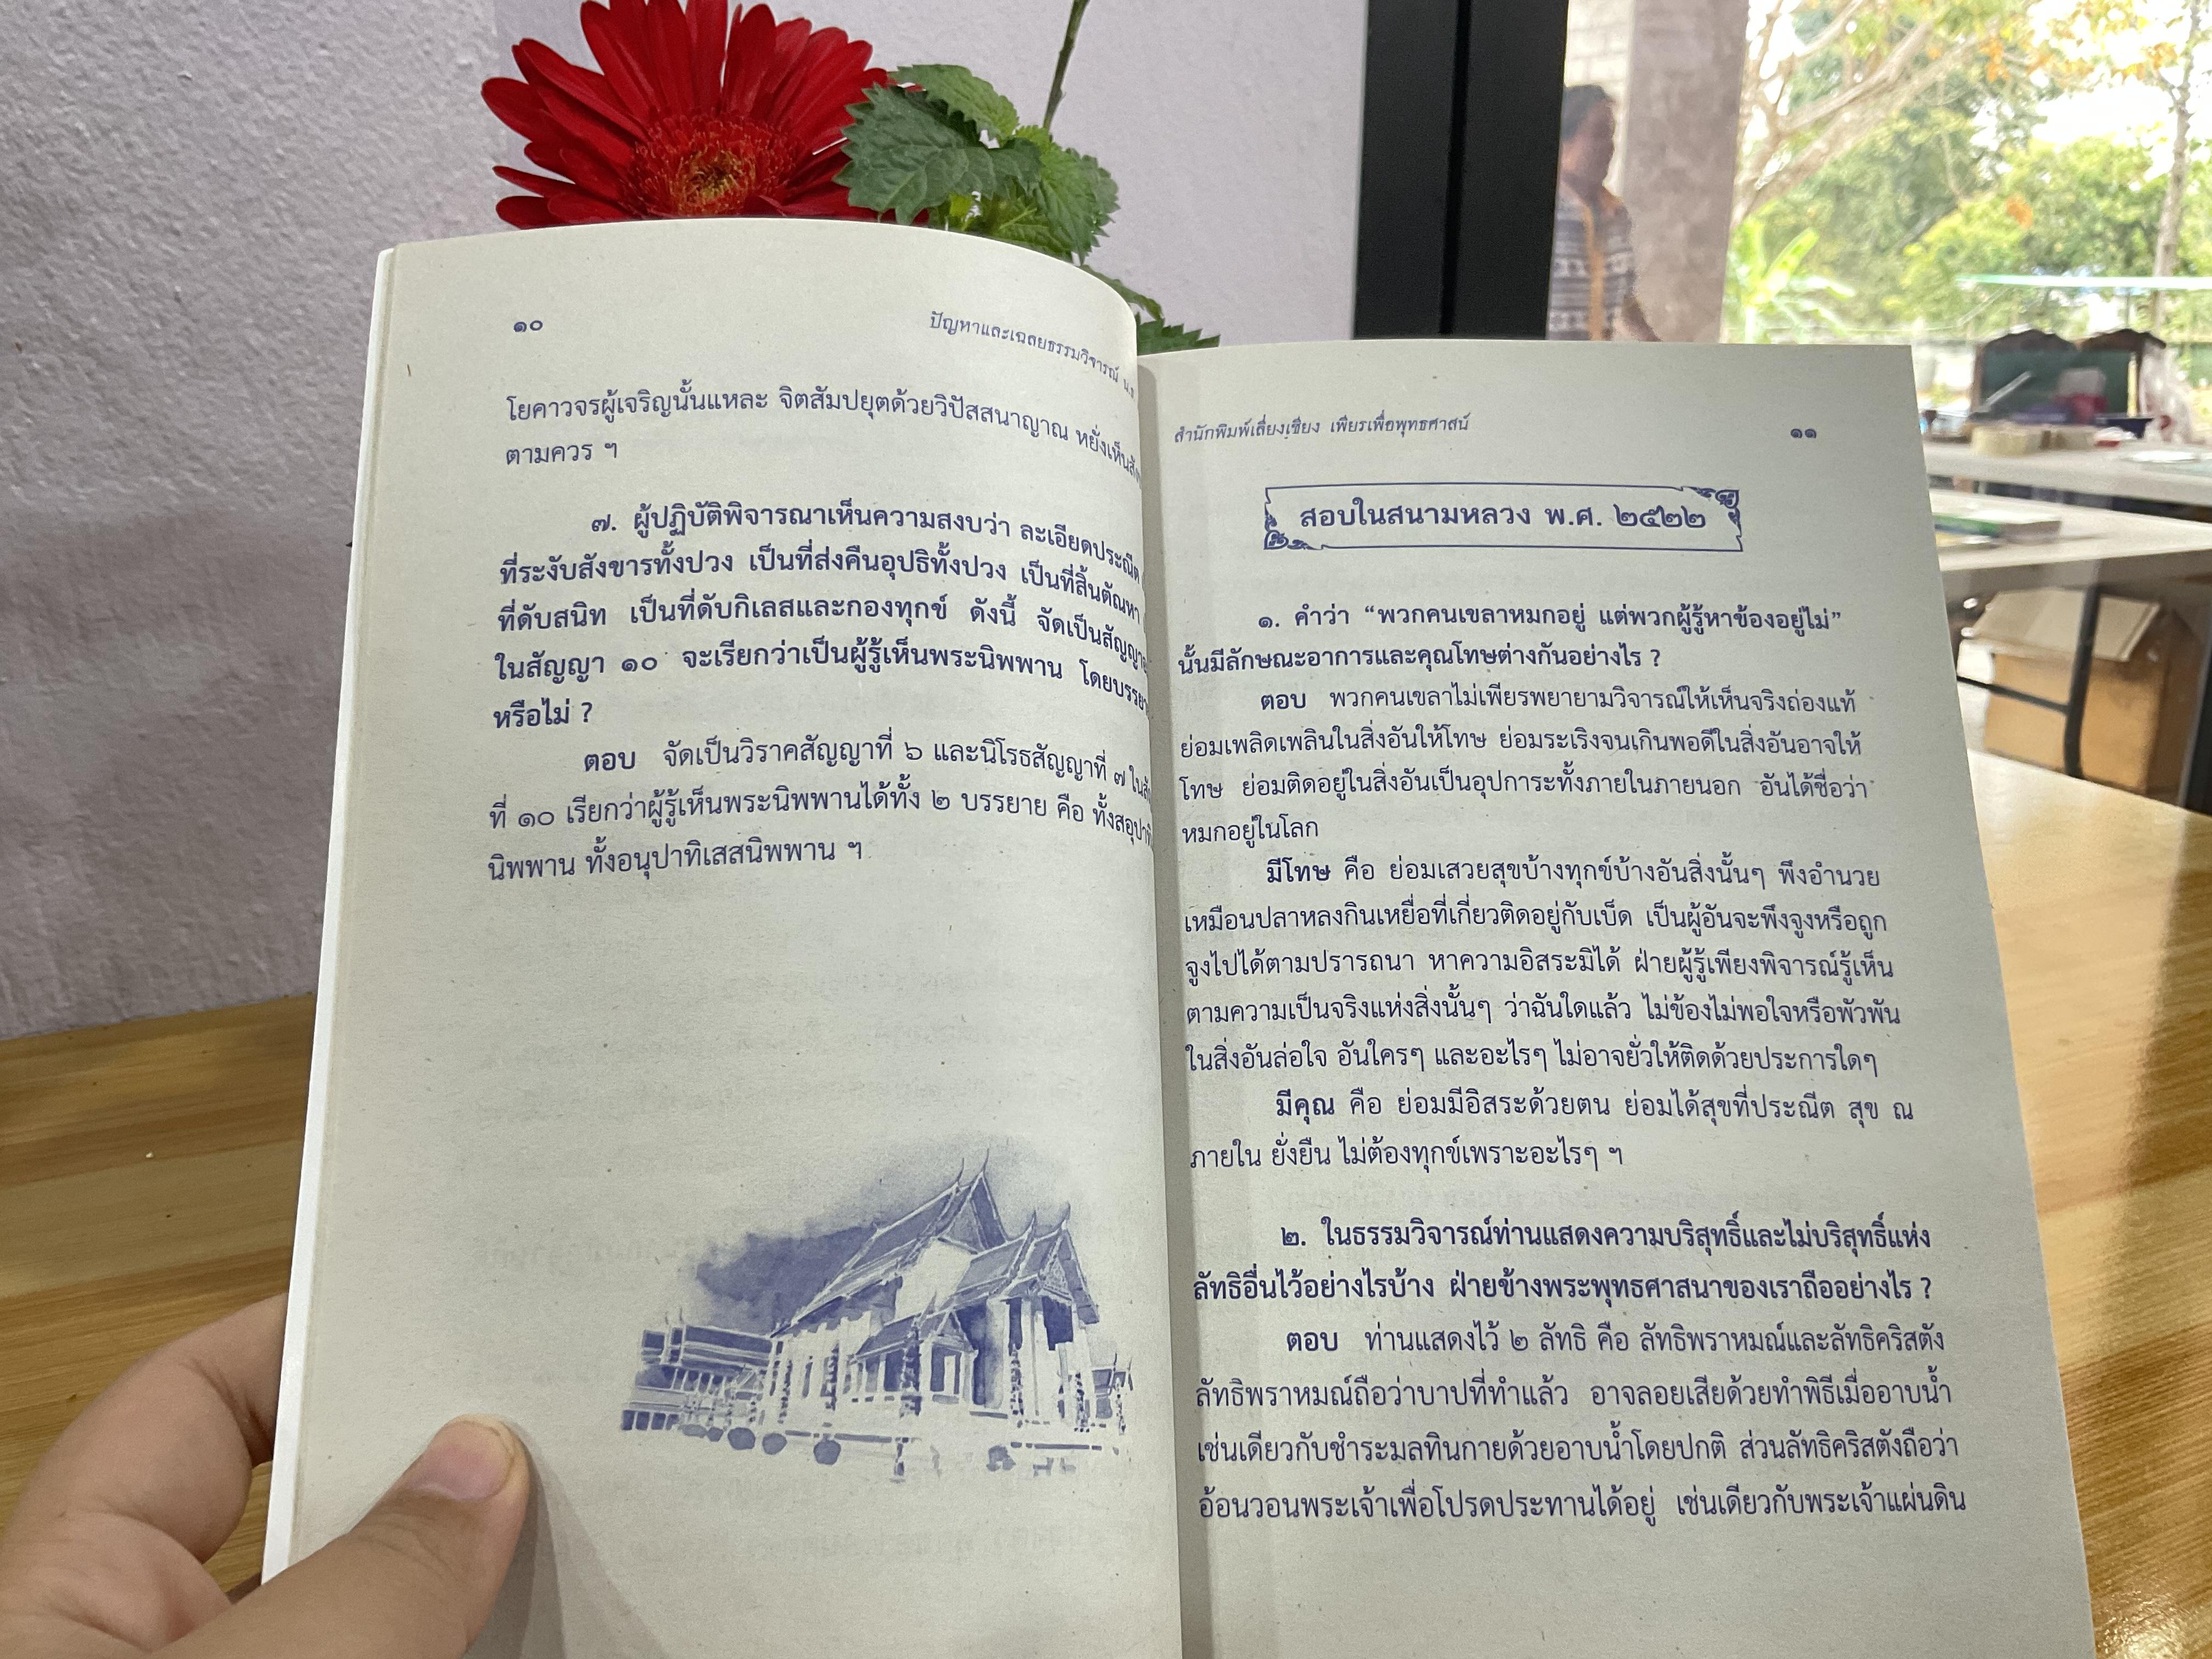 ๑๐
ปัญหาและเฉลยธรรมวิจารณ์ น.
โยคาวจรผู้เจริญนั้นแหละ จิตสัมปยุตด้วยวิปัสสนาญาณ หยั่งเห็น
ตามควร ฯ
๗. ผู้ปฏิบัติพิจารณาเห็นความสงบว่า ละเอียดประณีต
ที่ระงับสังขารทั้งปวง เป็นที่ส่งคืนอุปธิทั้งปวง เป็นที่สิ้นตัณหา
ที่ดับสนิท เป็นที่ดับกิเลสและกองทุกข์ ดังนี้ จัดเป็นสัญญา
ในสัญญา ๑๐ จะเรียกว่าเป็นผู้รู้เห็นพระนิพพาน
หรือไม่ ?
ตอบ จัดเป็นวิราคสัญญาที่ ๖ และนิโรธสัญญาที่ ๗
ที่ ๑๐ เรียกว่าผู้รู้เห็นพระนิพพานได้ทั้ง ๒ บรรยาย คือ
นิพพาน ทั้งอนุปาทิเสสนิพพาน ฯ
สำนักพิมพ์เลี่ยงเชียง เพียรเพื่อพุทธศาสน์
๑๑
สอบในสนามหลวง พ.ศ. ๒๕๒๒
๑. คำว่า “พวกคนเขลาหมกอยู่ แต่พวกผู้รู้หาข้องอยู่ไม่”
นั้นมีลักษณะอาการและคุณโทษต่างกันอย่างไร ?
ตอบ พวกคนเขลาไม่เพียรพยายามวิจารณ์ให้เห็นจริงถ่องแท้
ย่อมเพลิดเพลินในสิ่งอันให้โทษ ย่อมระเริงจนเกินพอดีในสิ่งอันอาจให้
โทษ ย่อมติดอยู่ในสิ่งอันเป็นอุปการะทั้งภายในภายนอก อันได้ชื่อว่า
หมกอยู่ในโลก
มีโทษ คือ ย่อมเสวยสุขบ้างทุกข์บ้างอันสิ่งนั้นๆ พึงอำนวย
เหมือนปลาหลงกินเหยื่อที่เกี่ยวติดอยู่กับเบ็ด เป็นผู้อันจะพึงจูงหรือถูก
จูงไปได้ตามปรารถนา หาความอิสระมิได้ ฝ่ายผู้รู้เพียงพิจารณ์รู้เห็น
ตามความเป็นจริงแห่งสิ่งนั้นๆ ว่าฉันใดแล้ว ไม่ข้องไม่พอใจหรือพัวพัน
ในสิ่งอันล่อใจ อันใครๆ และอะไรๆ ไม่อาจยั่วให้ติดด้วยประการใดๆ
มีคุณ คือ ย่อมมีอิสระด้วยตน ย่อมได้สุขที่ประณีต สุข ณ
ภายใน ยั่งยืน ไม่ต้องทุกข์เพราะอะไรๆ ฯ
๒. ในธรรมวิจารณ์ท่านแสดงความบริสุทธิ์และไม่บริสุทธิ์แห่ง
ลัทธิอื่นไว้อย่างไรบ้าง ฝ่ายข้างพระพุทธศาสนาของเราถืออย่างไร ?
ตอบ ท่านแสดงไว้ ๒ ลัทธิ คือ ลัทธิพราหมณ์และลัทธิคริสตัง
ลัทธิพราหมณ์ถือว่าบาปที่ทำแล้ว อาจลอยเสียด้วยทำพิธีเมื่ออาบน้ำ
เช่นเดียวกับชำระมลทินกายด้วยอาบน้ำโดยปกติ ส่วนลัทธิคริสตังถือว่า
อ้อนวอนพระเจ้าเพื่อโปรดประทานได้อยู่ เช่นเดียวกับพระเจ้าแผ่นดิน